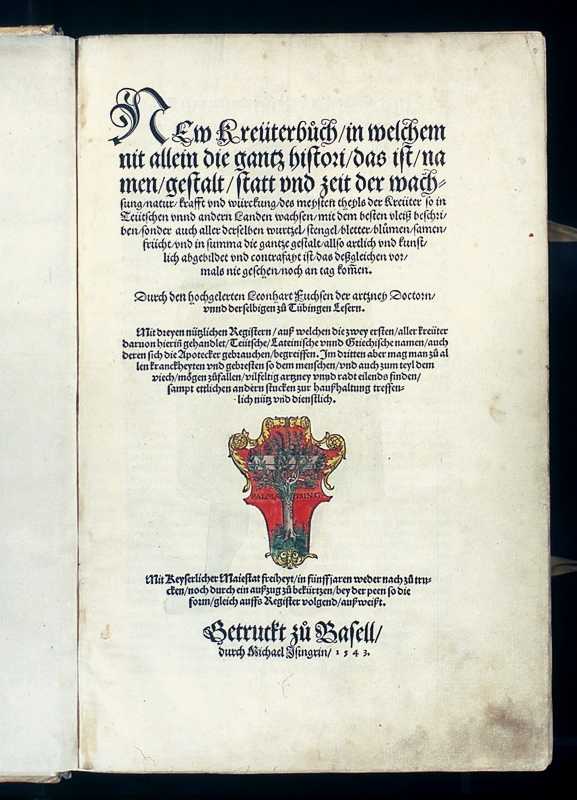 New Kreüterbůch/in welchem
nit allein die gantz histori/das ist/na
men/gestalt/statt vnd zeit der wach⸗
sung/natur/krafft vnd würckung/des meysten theyls der Kreüter so in
Teütschen vnnd andern Landen wachsen/mit dem besten vleiß beschri
ben/sonder auch aller derselben wurtzel/stengel/bletter/blůmen/samen/
frücht/vnd in summa die gantze gestalt/allso artlich vnd kunst⸗
lich abgebildet vnd contrafayt ist/das deßgleichen vor⸗
mals nie gesehen/noch an tag kom̄en.
Durch den hochgelerten Leonhart Fuchsen der artzney Doctorn/
vnnd derselbigen zů Tübingen Lesern.
Mit dreyen nützlichen Registern/auß welchen die zwey ersten/aller kreüter
daruon hierin̄ gehandlet/Teütsche/Lateinische vnnd Griechische namen/auch
deren sich die Apotecker gebrauchen/begreiffen. Im dritten aber mag man zů al
len kranckheyten vnd gebresten so dem menschen/vnd auch zum teyl dem
viech/mögen zůfallen/vilfeltig artzney vnnd radt eilends finden/
sampt ettlichen andern stucken zur haußhaltung treffen⸗
lich nütz vnd dienstlich.
PALMA ISING
Mit Keyserlicher Maiestat freiheyt/in fünff jaren weder nach zů tru⸗
cken/noch durch ein außzug zů bekürtzen/bey der peen so die
form/gleich auffs Register volgend/außweißt.
Getruckt zů Basell/
durch Michael Isingrin/1543.